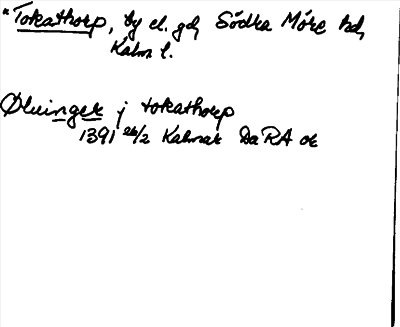 *Tokathorp, by el. gd, Södra Möre hd,
Kalm l.
Øluinger j tokathorp
1391 26/2 Kalmar DaRA or